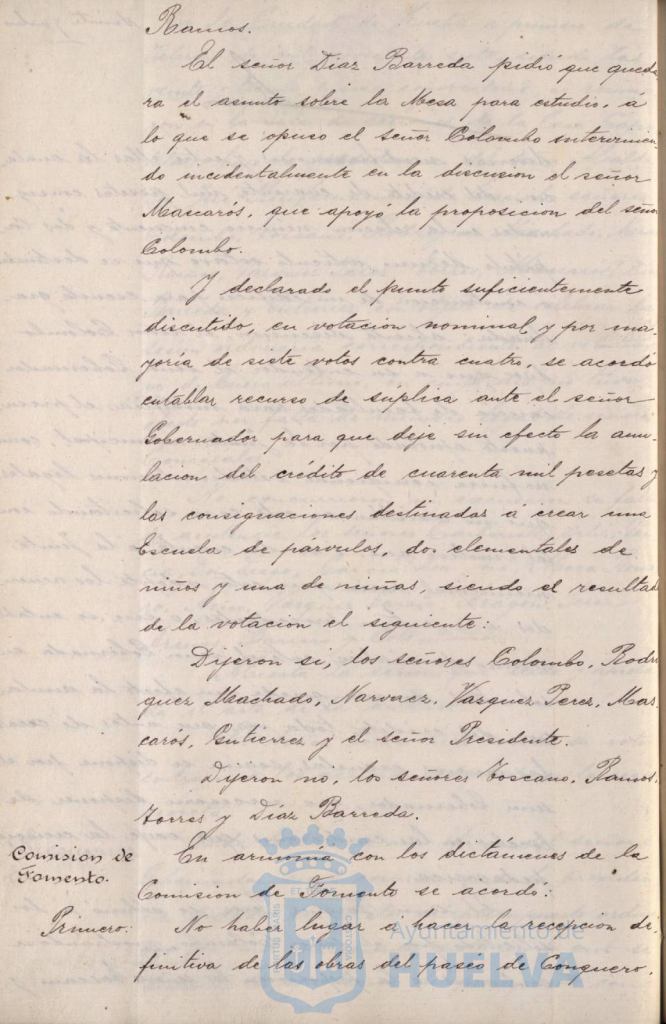 Ramos.
El señor Diaz Barreda pidió que queda-
ra el asunto sobre la Mesa para estudio, á
lo que se opuso el señor Colombo intervinien-
do incidentalmente en la discusion el señor
Mascarós, que apoyó la proposicion del señor
Colombo.
Y declarado el punto suficientemente
discutido, en votacion nominal y por ma-
yoría de siete votos contra cuatro, se acordó
entablar recurso de súplica ante el señor
Gobernador para que deje sin efecto la anu-
lacion del crédito de cuarenta mil pesetas y
las consignaciones destinadas á crear una
Escuela de párvulos, dos elementales de
niños y una de niñas, siendo el resultado
de la votacion el siguiente:
Dijeron si, los señores Colombo, Rodri
guez Machado, Narvaez, Vazquez Perez, Mas-
carós, Gutierrez y el señor Presidente.
Dijeron no, los señores Toscano, Ramos,
Torres y Díaz Barreda.
Comision de
Fomento.
En armonía con los dictámenes de la
Comision de Fomento se acordó:
Primero:
No haber lugar á hacer la recepcion de-
finitiva de las obras del paseo de Conquero,
Ayuntamiento de
HUELVA